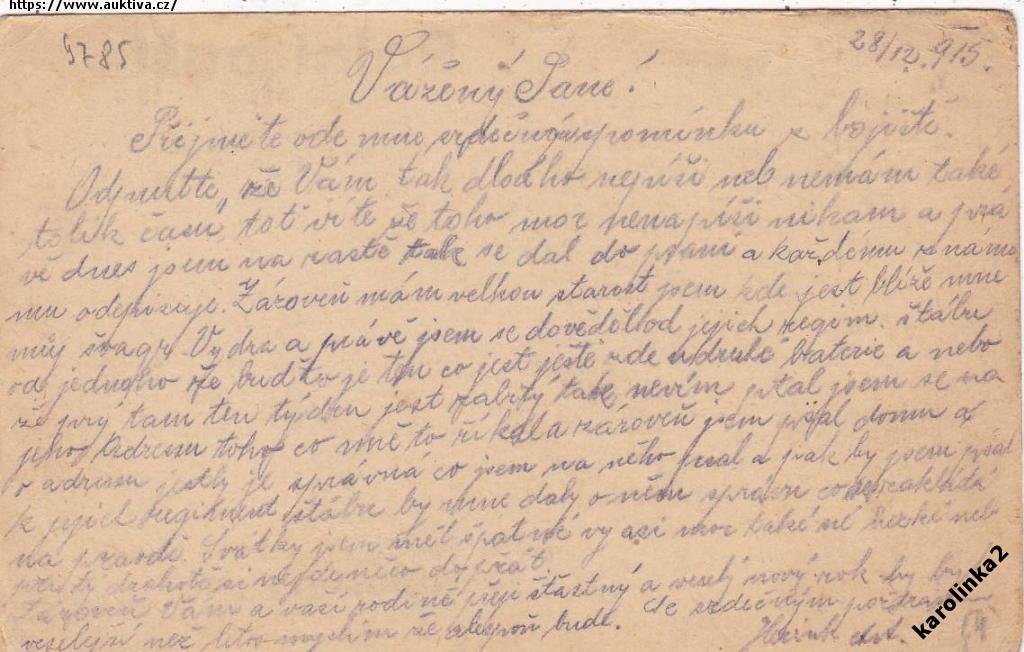 https://www.auktiva.cz/
9785
28/12. 915.
Vážený Pane!
Přijměte ode mne srdečnou vzpomínku z bojiště.
Odpusťte, že Vám tak dlouho nepíši neb nemám také
tolik času, tož víte že toho moc nenapíši nikam a prá
vě dnes jsem na rastě tak se dal do psaní a každému známé
mu odepisuje. Zároveň mám velkou starost jsem kde jest blíže mne
můj švagr Vydra a právě jsem se dověděl od jejich regim. štábu
od jednoho že buďto je ten co jest ještě zde u druhé baterie a nebo
že prý tam ten týden jest zabitý tak nevím ptal jsem se na
jeho adresu toho co mně to říkal a zároveň jsem psal domu a
o adresu jestli je správná co jsem na něho psal a pak by jsem psal
k jejich regiment štábu by mne daly o něm správu co se zakládá
na pravdě. Svátky jsem měl špatné vy asi moc také né hezké neb
při té drahotě si nejde něco dopřát.
Zároveň Vám a vaší rodině přeji šťastný a veselý nový rok by byl
veselejší než letos myslím že alespoň bude. Se srdečným pozdravem
karolinka2